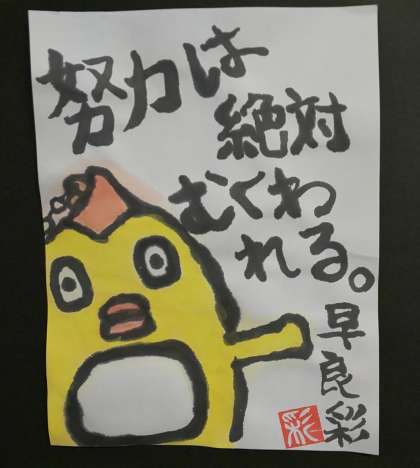 努力は
絶対
むくわ
れる。
早良彩
彩